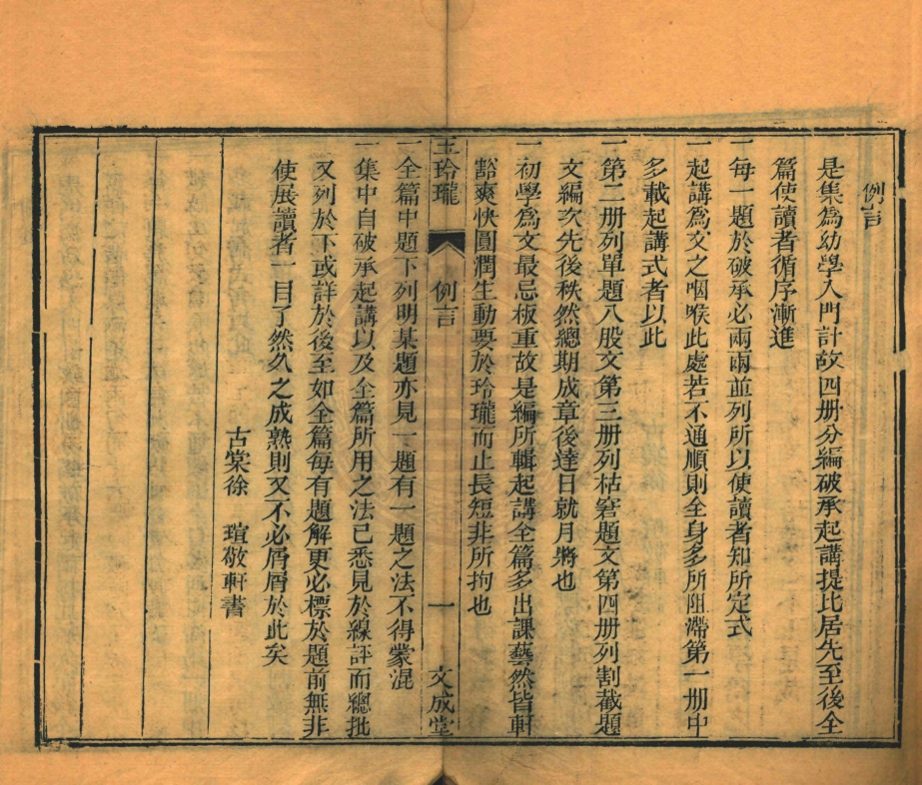 例言
是集為幼學入門計故四册分編破承起講提比居先至後全
篇使讀者循序漸進
一每一題於破承必兩兩並列所以使讀者知所定式
一起講為文之咽喉此處若不通順則全身多所阻滯第一册中
多載起講式者以此
一第二册列單題八股文第三册列枯窘題文第四册列割截題
文編次先後秩然總期成章後達日就月將也
一初學為文最忌板重故是編所輯起講全篇多出課藝然皆軒
豁爽快圓潤生動要於玲瓏而止長短非所拘也
玉玲瓏 例言 一 文成堂
一全篇中題下列明某題亦見一題有一題之法不得蒙混
一集中自破承起講以及全篇所用之法已悉見於線評而總批
又列於下或詳於後至如全篇每有題解更必標於題前無非
使展讀者一目了然久之成熟則又不必屑屑於此矣
古棠徐 瑄敬軒書